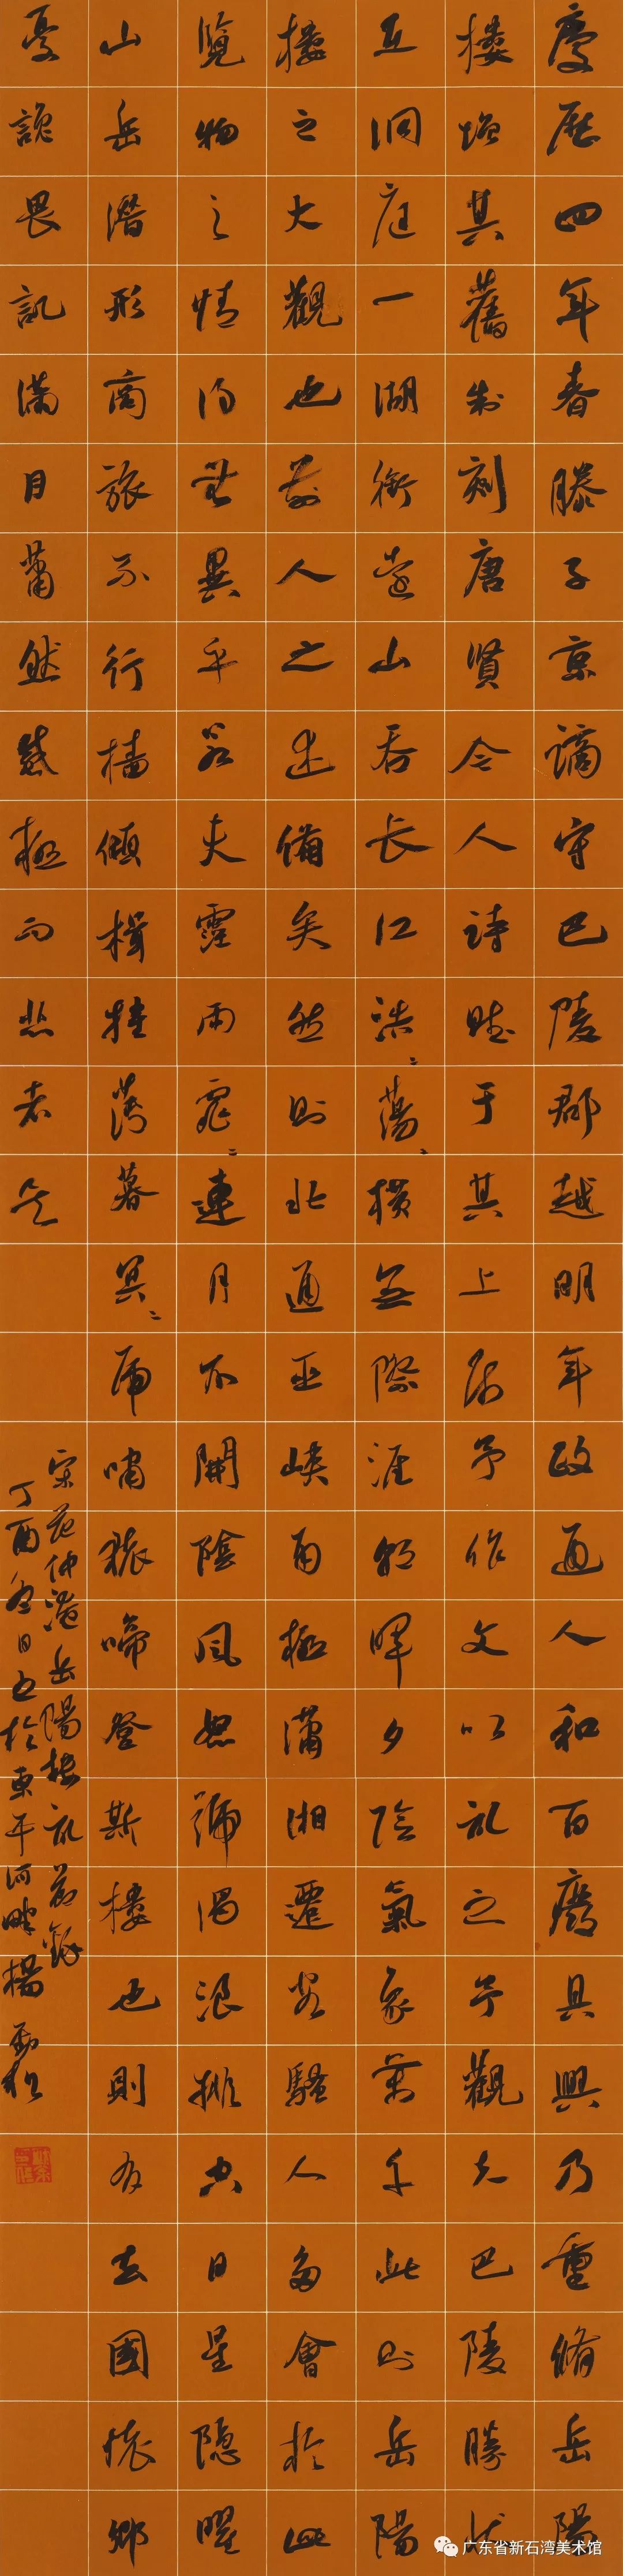 慶歷四年春滕子京謫守巴陵郡越明年政通人和百廢具興乃重脩岳陽
樓增其舊制刻唐賢今人詩賦于其上属予作文以記之予觀夫巴陵勝狀
在洞庭一湖銜遠山吞長江浩〻蕩〻橫無際涯朝暉夕陰氣象萬千此則岳陽
樓之大觀也前人之述備矣然則北通巫峽南極瀟湘遷客騷人多會於此
覽物之情得無異乎若夫霪雨霏〻連月不開陰風怒號濁浪排空日星隱曜
山岳潛形商旅不行檣傾楫摧薄暮冥〻虎嘯猿啼登斯樓也則有去國懷鄉
憂讒畏譏滿目蕭然感極而悲者矣
宋范仲淹岳陽樓記節錄
丁酉冬日書於東平河畔楊勁松
广东省新石湾美术馆